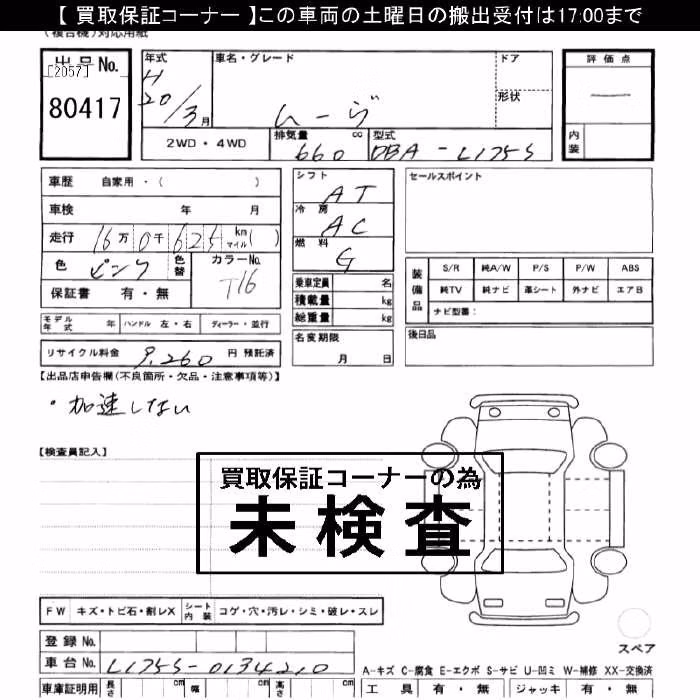 【 買取保証コーナー 】この車両の土曜日の搬出受付は17:00まで
(複合機)対応用紙
出品No. [2057] 80417
年式 H 20/3月
車名・グレード ムーヴ
ドア
形状
評価点 —
内装
2WD・4WD
排気量 660 cc
型式 DBA-L175S
車歴 自家用・( )
車検 年 月
走行 16万0千625 km マイル( )
色 ピンク 色替 カラーNo. T16
保証書 有・無
シフト AT
冷房 AC
燃料 G
乗車定員 名
積載量 kg
総重量 kg
セールスポイント
装備品 S/R 純A/W P/S P/W ABS
純TV 純ナビ 革シート 外ナビ エアB
ナビ型番:
モデル年式 年 ハンドル 左・右 ディーラー・並行
名変期限 月 日
後日品
リサイクル料金 9,260 円 預託済
【出品店申告欄(不良箇所・欠品・注意事項等)】
・加速しない
【検査員記入】
買取保証コーナーの為
未検査
FW キズ・トビ石・割レX シート内装 コゲ・穴・汚レ・シミ・破レ・スレ
スペア
登録No.
車台No. L175S-0134210
A-キズ C-腐食 E-エクボ S-サビ U-凹ミ W-補修 XX-交換済
車庫証明用 長さ cm 幅 cm 高さ cm
工具 有・無 ジャッキ 有・無